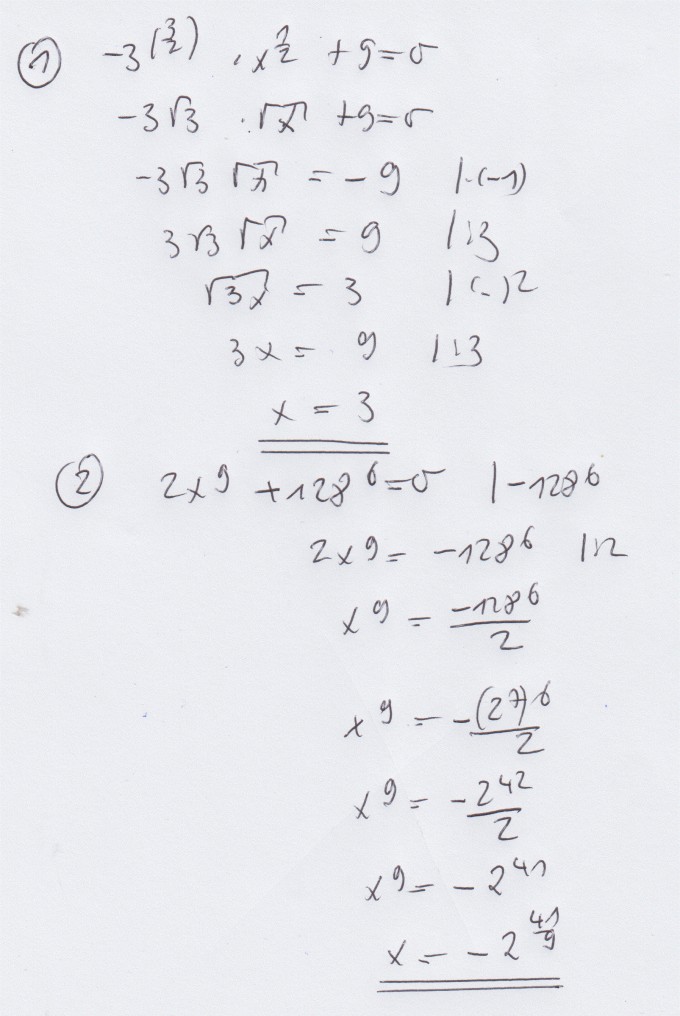 ① -3^(3/2) · x^1/2 + 9 = 0
-3√3 · √x + 9 = 0
-3√3 √x = -9 | · (-1)
3√3 √x = 9 | :3
√3x = 3 | (-)²
3x = 9 | :3
x = 3
② 2x⁹ + 128⁶ = 0 | -128⁶
2x⁹ = -128⁶ | :2
x⁹ = -128⁶/2
x⁹ = -(2⁷)⁶/2
x⁹ = -2⁴²/2
x⁹ = -2⁴¹
x = -2^41/9